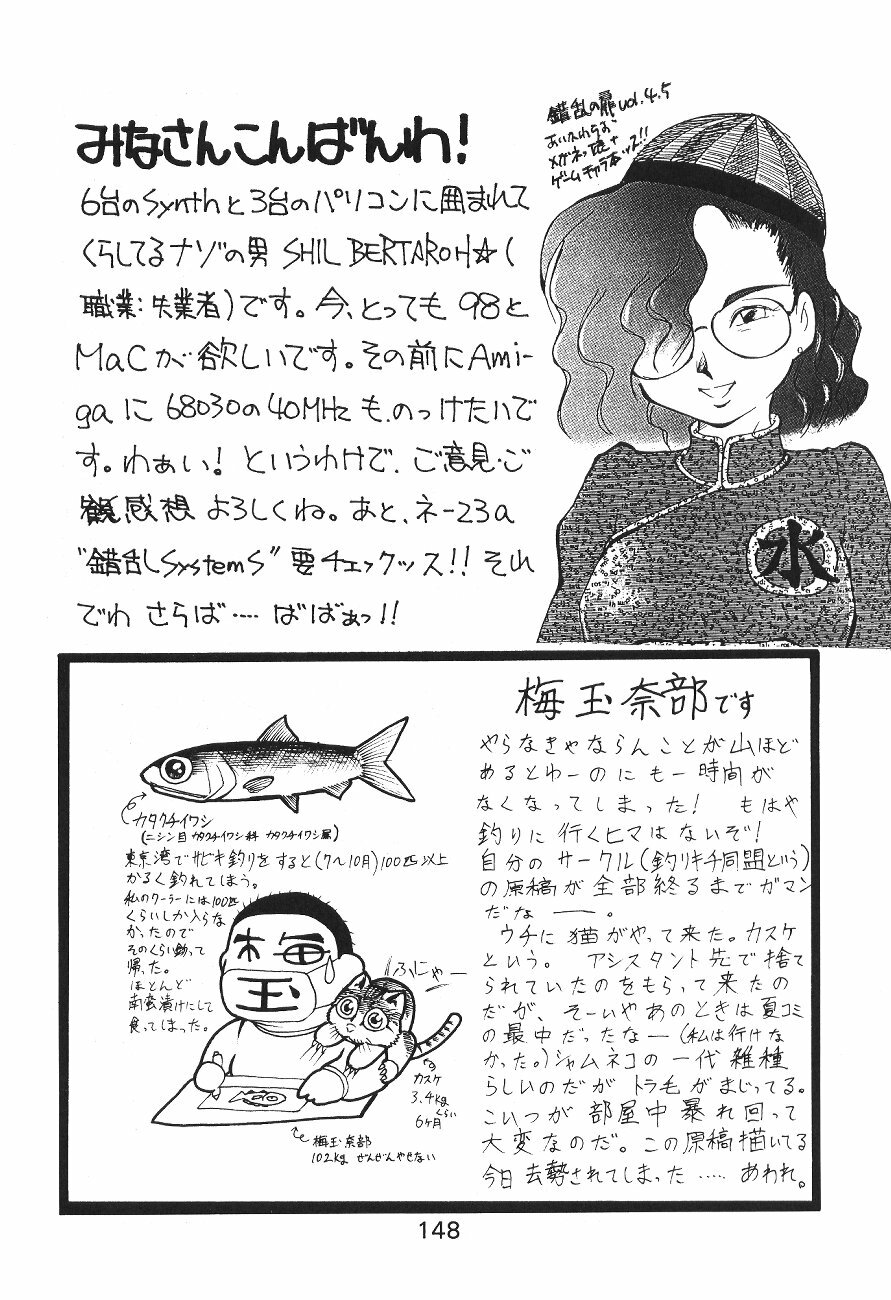 みなさんこんばんわ!
6台のSynthと3台のパソコンに囲まれて
くらしてるナゾの男 SHIL BERTAROH☆(
職業:失業者)です。今、とっても 98と
MaCが欲しいです。その前にAmi-
gaに 68030の40MHzも、のっけたいで
す。わぁい! というわけで、ご意見・ご
感想 よろしくね。あと、ネー23a
"錯乱SystemS"要チェックッス!! それ
でわ さらば…. ばばぁっ!!
錯乱の扉vol.4.5
メガネっ娘
ゲームキャラ本ッス!!
水
梅玉奈部です
やらなきゃならんことが山ほど
あるとゆーのにもー時間が
なくなってしまった! もはや
釣りに行くヒマはないぞ!
自分のサークル(釣りキチ同盟という)
の原稿が全部終るまでガマン
だなー。
ウチに猫がやって来た。カスケ
という。 アシスタント先で捨て
られていたのをもらって来たの
だが、そーいやあのときは夏コミ
の最中だったなー(私は行けな
かった。)シャムネコの一代雑種
らしいのだがトラ毛がまじってる。
こいつが部屋中暴れ回って
大変なのだ。この原稿描いてる
今日去勢されてしまった….. あわれ。
カタクチイワシ
(ニシン目 カタクチイワシ科 カタクチイワシ属)
東京湾でサビキ釣りをすると(7〜10月)100匹以上
かるく釣れてしまう。
私のクーラーには100匹
くらいしか入らな
かったので
そのくらい釣って
帰った。
ほとんど
南蛮漬けにして
食ってしまった。
梅
玉
ふにゃー
カスケ
3.4kg
くらい
6ヶ月
梅玉奈部
102kg ぜんぜんやせない
148